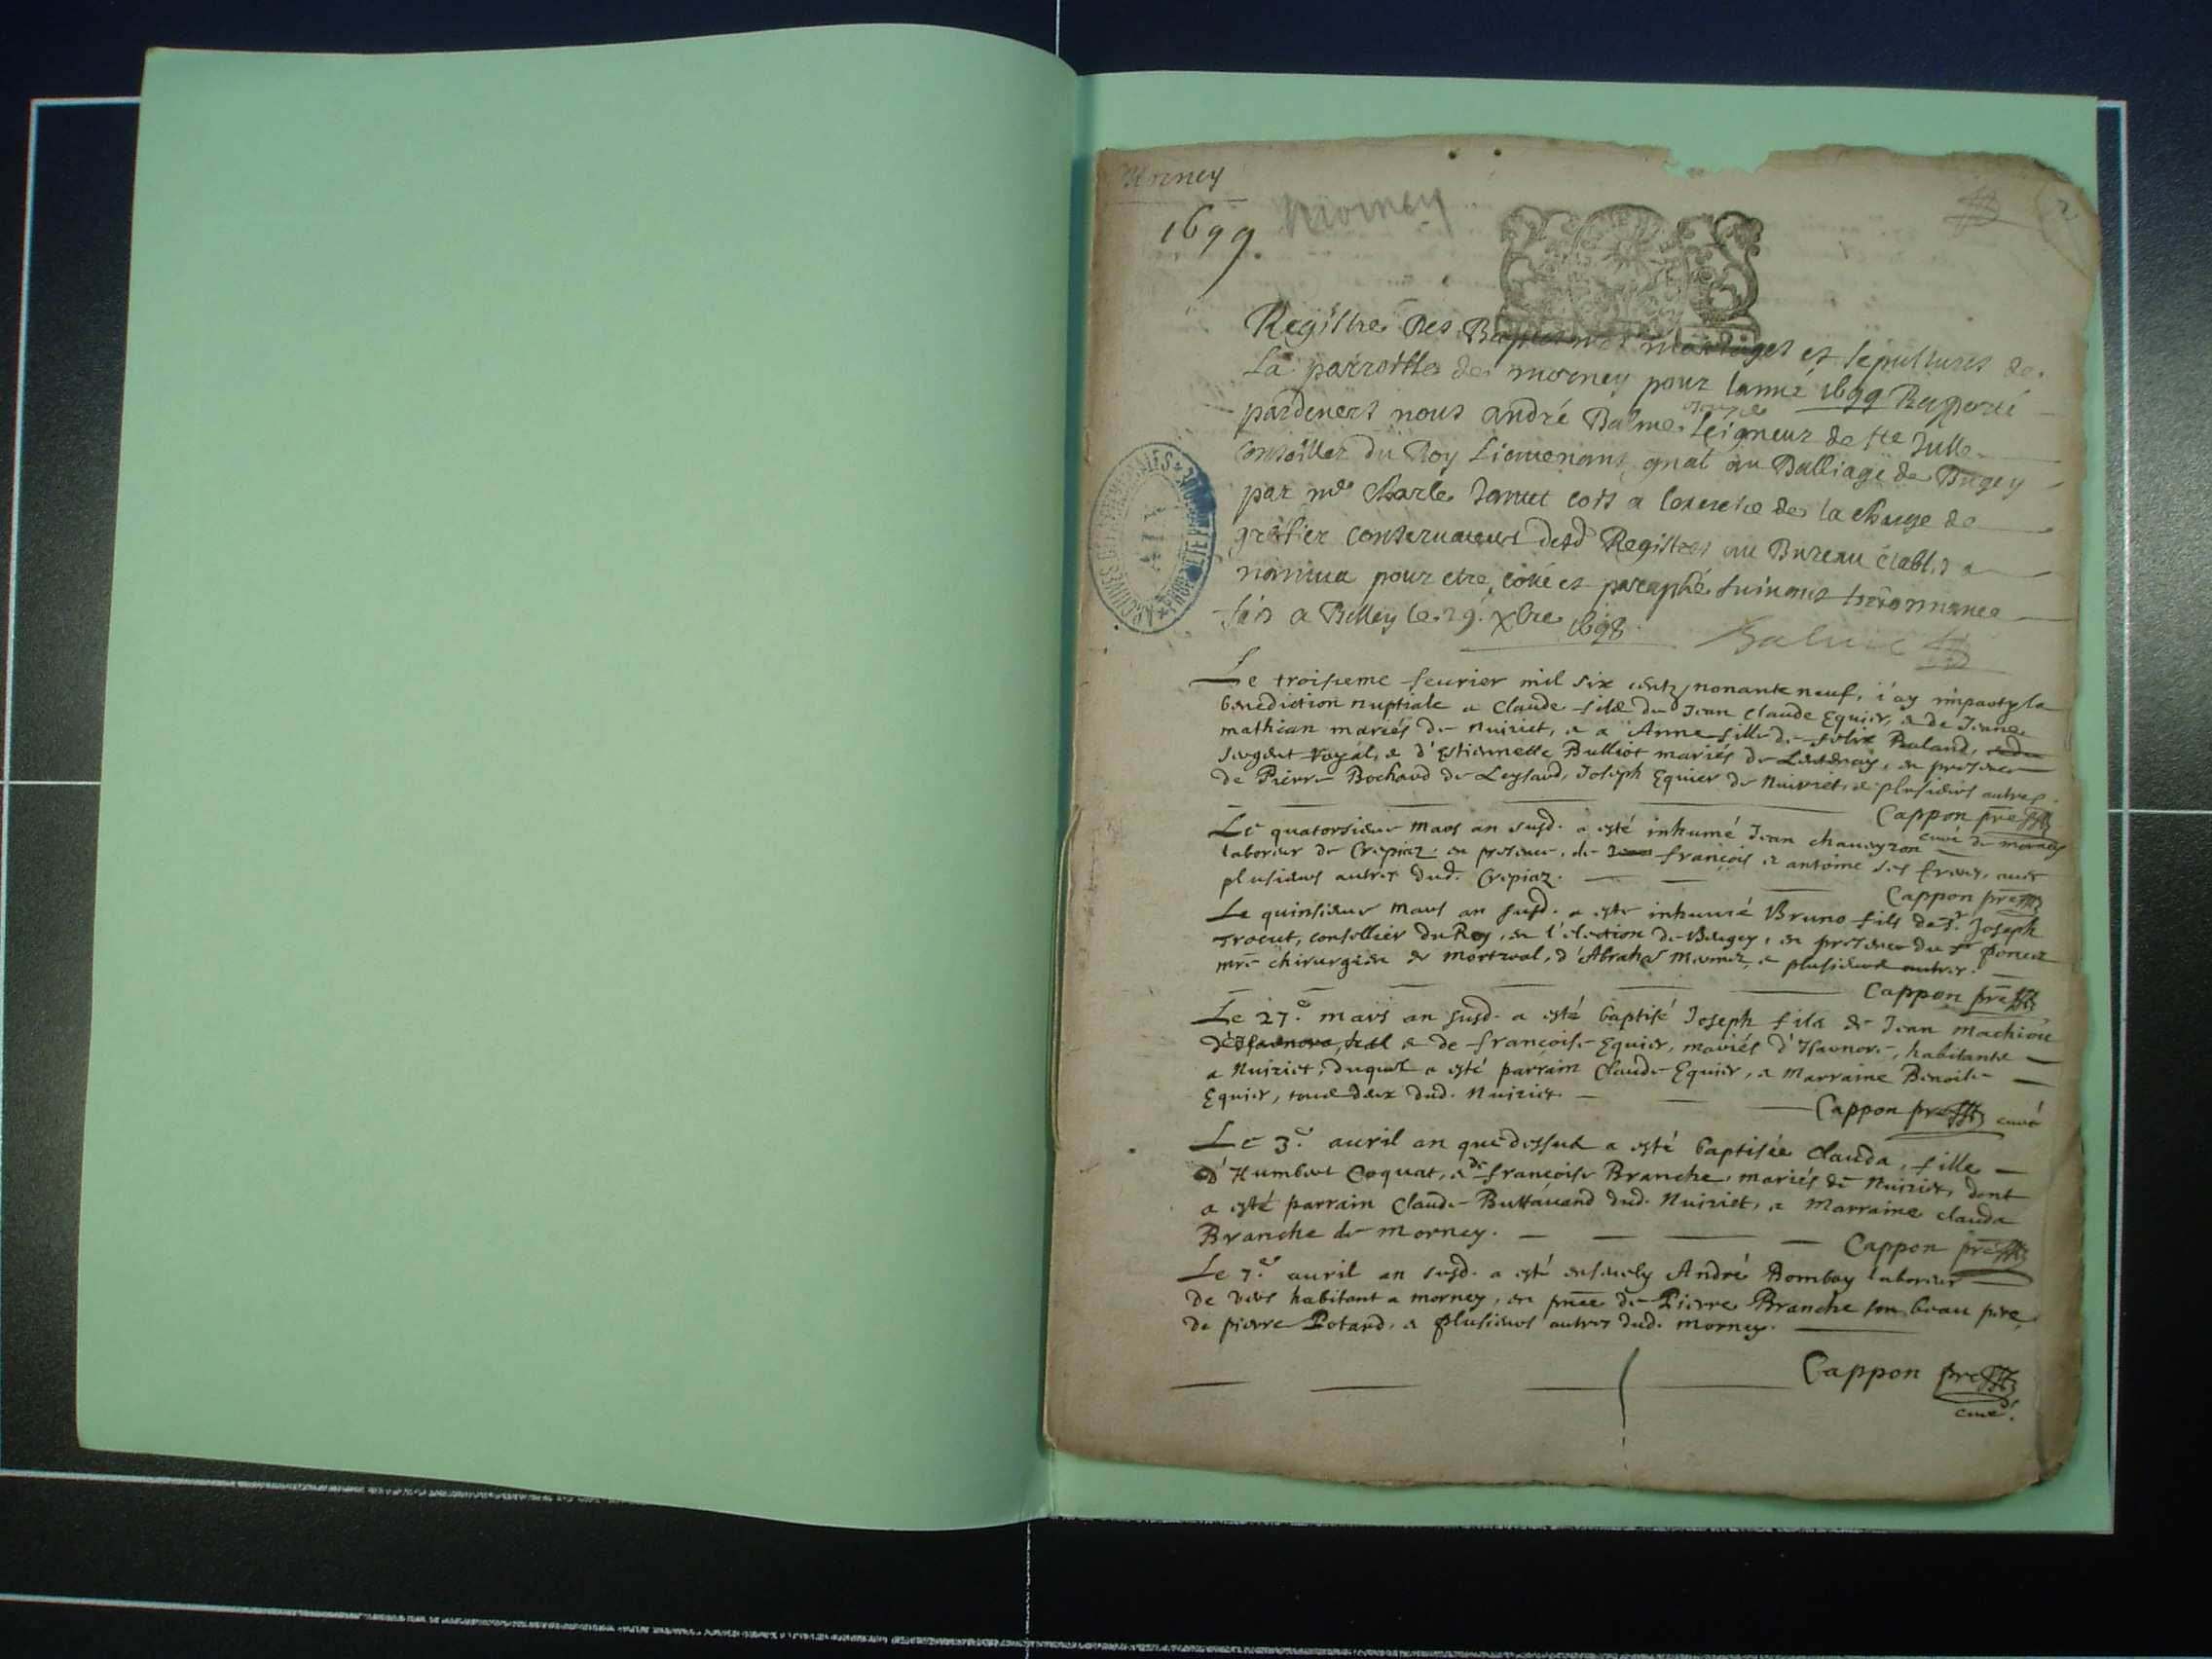 Morney
1699. Morney
2
Registre des Baptesmes mariages et sepultures de
La parroisse de morney pour lanné 1699 Raporté
pardevers nous andré Balme Seigneur de Ste Julle
Conseiller du Roy Lieutenant gnal au Balliage de Bugey
par me Charle Janet cois a lexercice de la charge de
greffier conservateur desd Registres au Bureau établis a
nantua pour etre coté et paraphé suivant
fais a Belley le 29. Xbre 1698. Balme
Le troisieme feurier mil six centz nonante neuf, i'ay imparty la
benediction nuptiale a Claude fils de Jean Claude Equier, & de Jeane
mathian mariés de Nuiriet, & a Anne fille de felix Baland,
sergent Royal, & d'Estiennette Bulliot mariés de en presence
de Pierre Bochard de Leyssard, Joseph Equier de Nuiriet, & plusieurs autres.
Cappon pre
curé de morney
Le quatorsieme mars an susd. a esté inhumé Jean chaueyron
laboreur de Crepiaz. en presence, de françois & antoine ses freres, auec
plusieurs autres dud. Crepiaz.
Cappon pre
Le quinsieme mars an susd. a esté inhumé Bruno fils de Sr. Joseph
Trocut, consellier du Roy, en l'election de Beugey, en presence du sr ponce
mre chirurgien de mortaval, d' & plusieurs autres.
Cappon pre
Le 27.e mars an susd. a esté baptisé Joseph fils de Jean machiou
& de françoise Equier, mariés d'Isarnore, habitants
a Nuiriet, duquel a esté parrain Claude Equier, & Marraine Benoite
Equier, tous deux dud. Nuiriet.
Cappon pre curé
Le 3.e auril an que dessus a esté baptisée Clauda, fille
d'Humbert Coquat, & de françoise Branche, mariés de Nuiriet, dont
a esté parrain Claude Buttauand dud. Nuiriet, & Marraine clauda
Branche de morney.
Cappon pre
Le 7.e auril an susd. a esté enseuely André Bombay laboreur
de vers habitant a morney, en pnce de Pierre Branche son beau pere,
de pierre Potard, & plusieurs autres dud. morney.
Cappon pre
curé.